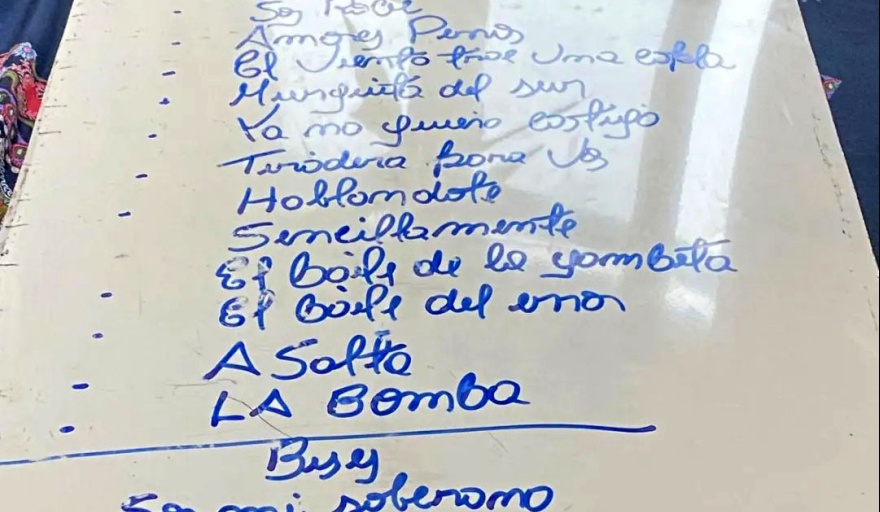 Amores Perros
El viento trae una copla
Murguita del sur
Ya no quiero castigo
Tiradera para vos
Hablandote
Sencillamente
El baile de la gambeta
El baile del
A Salta
LA BOMBA
Bises
mi soberano